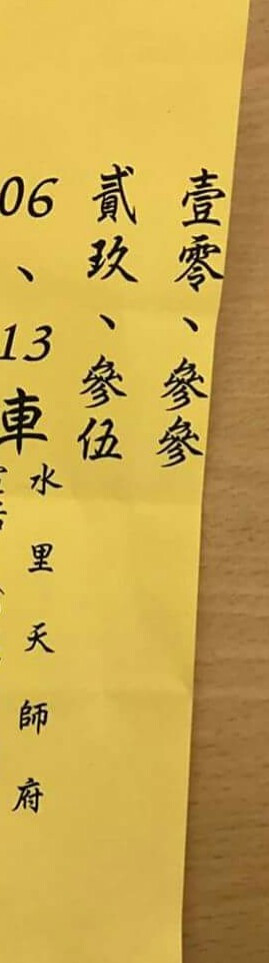 壹零、參參
貳玖、參伍
06、13車
水里天師府